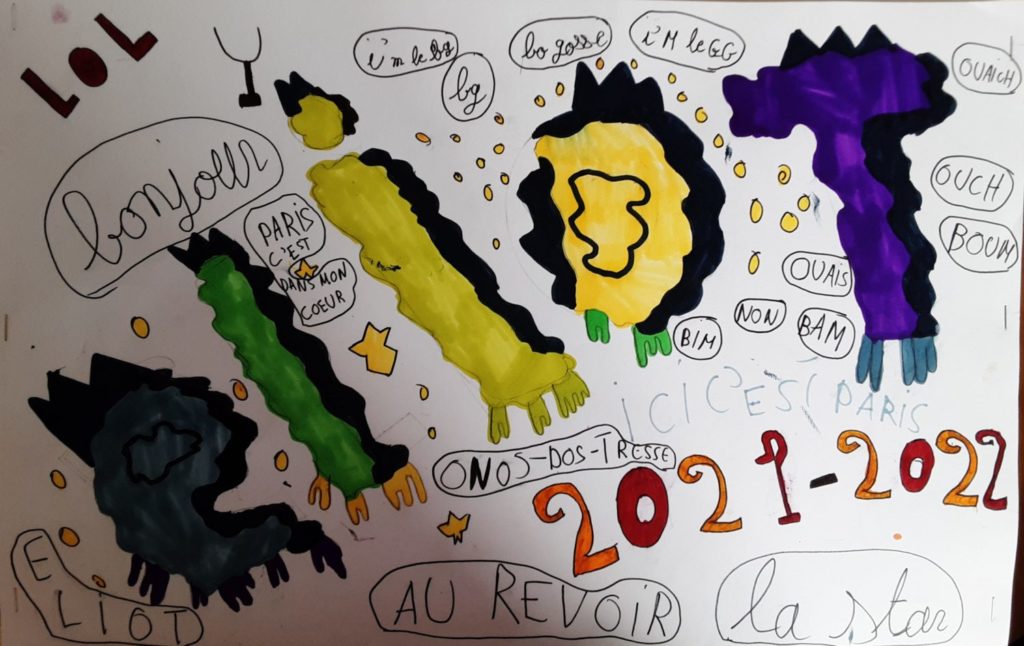 LOL
i'm le bg
bg
bo gosse
i'M leGG
OUAICH
bonjour
PARIS
C'EST
DANS MON
COEUR
ELIOT
OUCH
BOUM
OUAIS
NON
BAM
BIM
iCi C'EST PARIS
ONOS-DOS-TRESSE
2021-2022
E
LIOT
AU REVOIR
la star